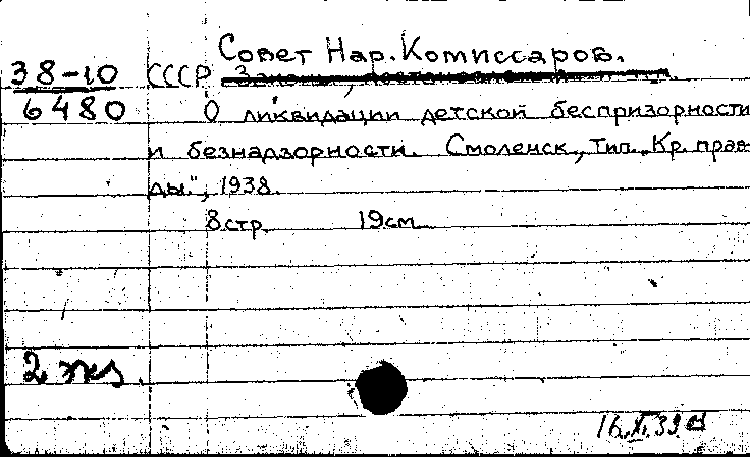 Совет Нар. Комиссаров.
38-10 СССР
6480 О ликвидации детской беспризорности
и безнадзорности. Смоленск, Тип. „Кр. прав-
ды", 1938.
8 стр. 19 см.
2 экз.
16.XI.39